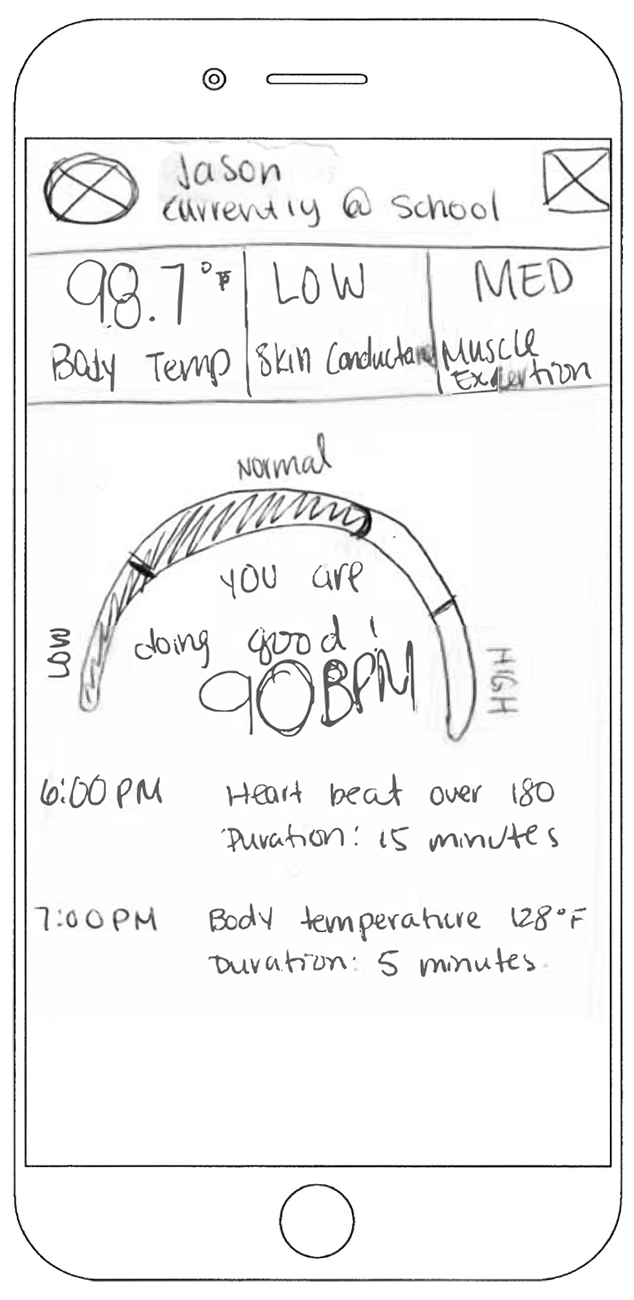 Jason
currently @ school
98.7°F
LOW
MED
Body Temp
Skin Conductan
Muscle
Exertion
Normal
LOW
HIGH
YOU are
doing good!
90BPM
6:00 PM
Heart beat over 180
Duration: 15 minutes
7:00 PM
Body temperature 128°F
Duration: 5 minutes.